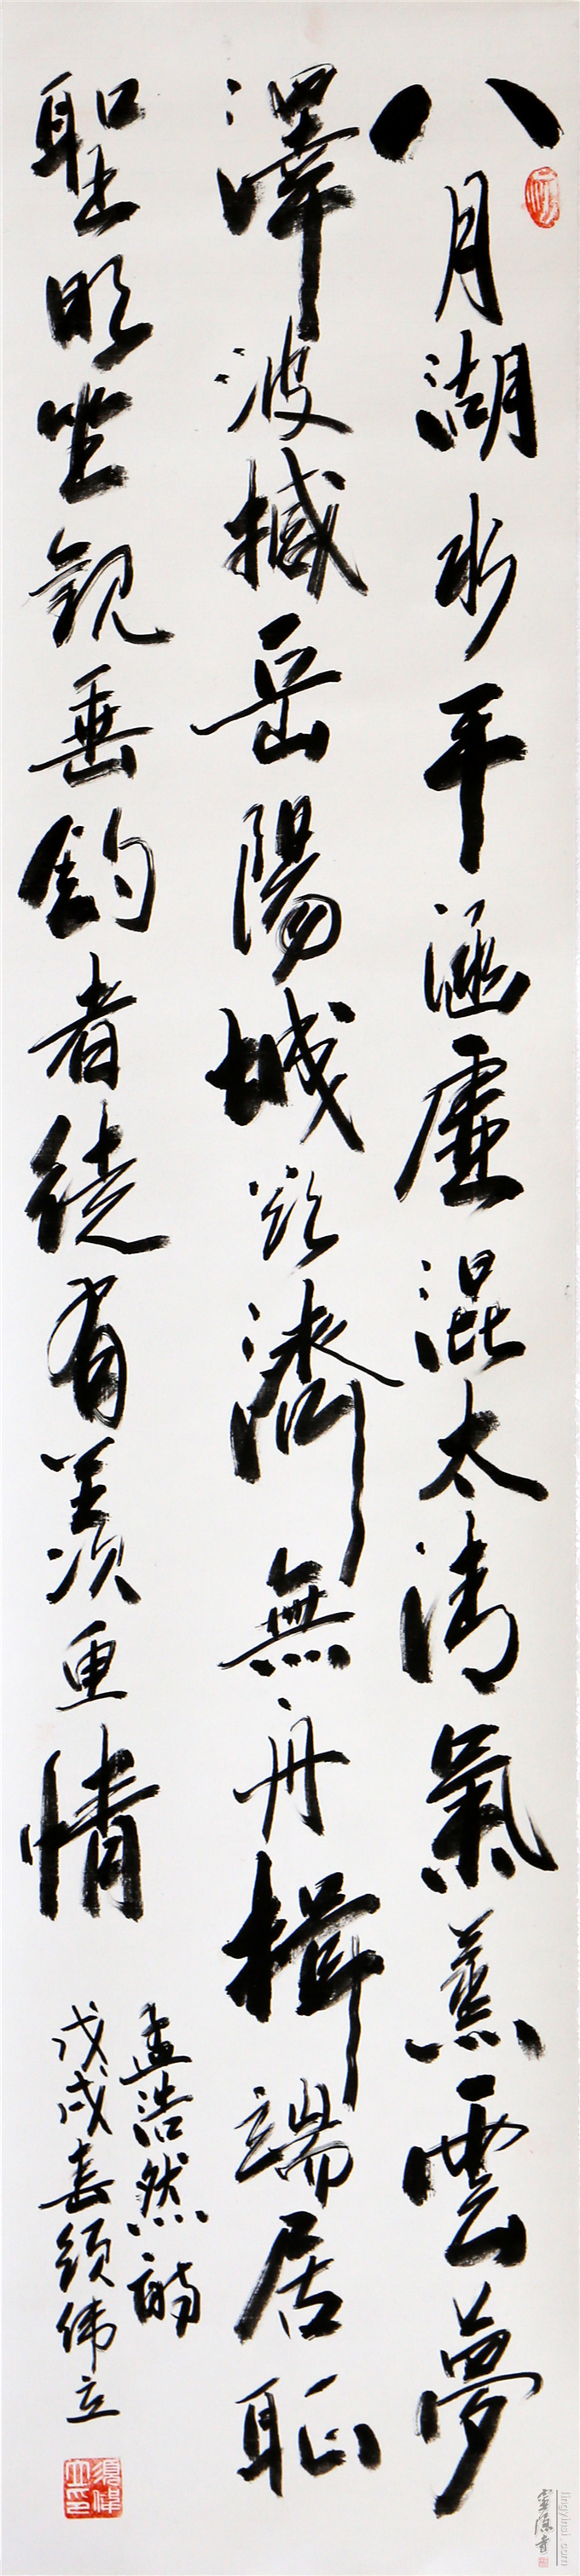 八月湖水平涵虚混太清氣蒸雲夢
澤波撼岳陽城欲濟無舟楫端居恥
聖明坐觀垂釣者徒有羡鱼情
孟浩然詩
戊戌春须伟立
須偉立印